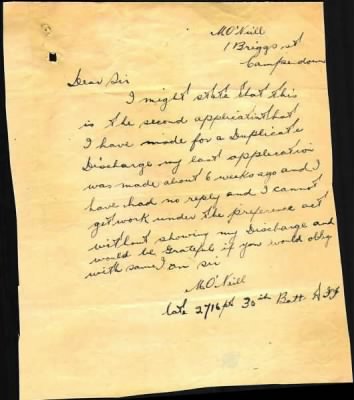 M O'Neill
1 Briggs st
Camperdown
Dear Sir
I might state that this
is the second application that
I have made for a Duplicate
Discharge my last application
was made about 6 weeks ago and I
have had no reply and I cannot
get work under the preference act
without showing my Discharge and
would be Grateful if you would oblige
with same I am sir
M O'Neill
late 2716 pte 30th Batt. AIF